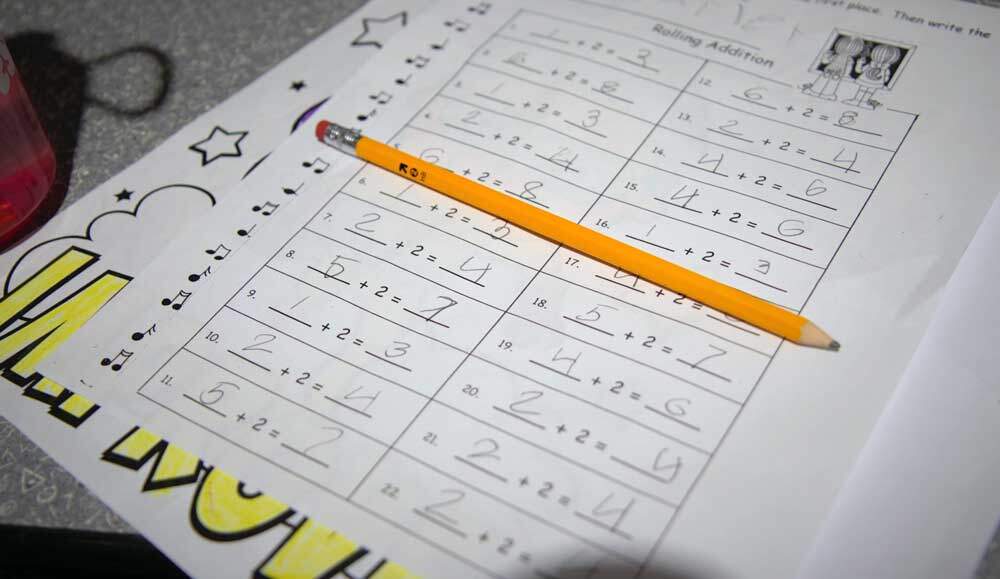 first place. Then write the
Rolling Addition
1 + 2 = 3
6 + 2 = 8
3. 1 + 2 = 3
4. 2 + 2 = 4
6 + 2 = 8
6. 1 + 2 = 3
7. 2 + 2 = 4
8. 5 + 2 = 7
9. 1 + 2 = 3
10. 2 + 2 = 4
11. 5 + 2 = 7
12. 6 + 2 = 8
13. 2 + 2 = 4
14. 4 + 2 = 6
15. 4 + 2 = 6
16. 1 + 2 = 3
17. 4 + 2 =
18. 5 + 2 = 7
19. 4 + 2 = 6
20. 2 + 2 = 4
21. 2 + 2 = 4
22. 2 + 2 =